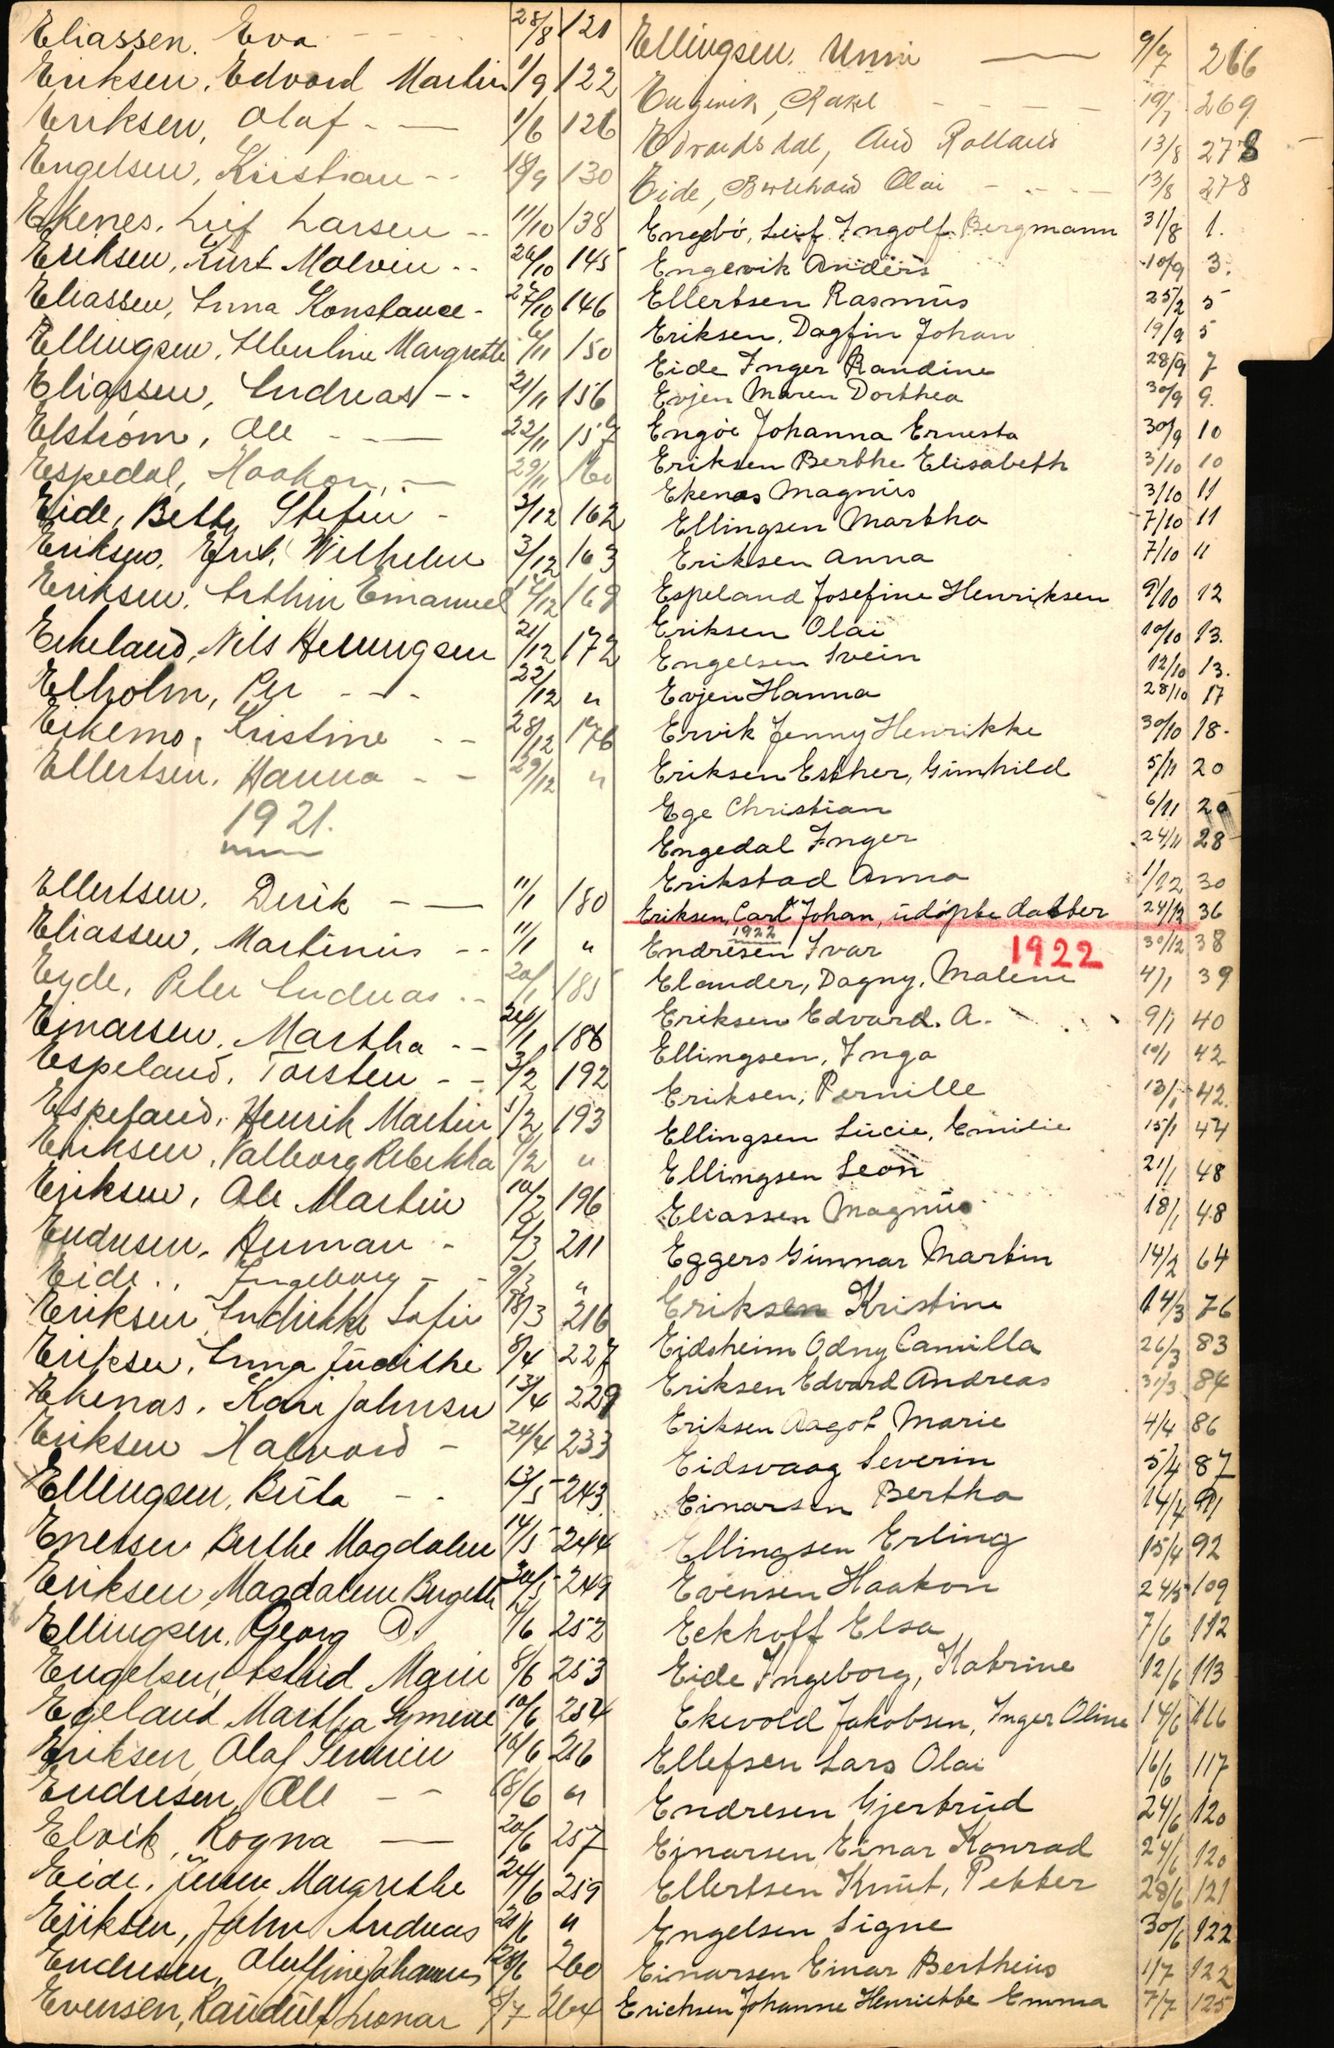 Eliassen, Eva 28/8 121
Eriksen, Edvard Martin 1/9 122
Eriksen, Olaf 1/6 126
Engelsen, Kristian 18/9 130
Ekenes, Leif Larsen 11/10 138
Eriksen, Kurt Malvin 26/10 145
Eliassen, Anna Konstance 27/10 146
Ellingsen, Alberline Margrethe 6/11 150
Eliassen, Andreas 21/11 156
Elstrøm, Ole 22/11 157
Espedal, Haakon 29/11 160
Eide, Betty Stefin 3/12 162
Eriksen, Wilhelm 3/12 163
Eriksen, Arthur Emanuel 17/12 169
Eikeland, Nils Henningsen 21/12 172
Elholm, Per 22/12 "
Eikemo, Kristine 28/12 176
Ellertsen, Hanna 29/12 "
1921.
Ellertsen, Dirik 11/1 180
Eliassen, Martinus 11/1 "
Eyde, Peter Andreas 20/1 185
Einarsen, Martha 26/1 186
Espeland, Torsten 3/2 192
Espeland, Henrik Martin 5/2 193
Eriksen, Valborg Rebekka 7/2 "
Eriksen, Ole Martin 10/2 196
Endresen, Herman 7/3 211
Eide, Ingeborg 9/3 "
Eriksen, Andrikke Sofie 18/3 216
Eriksen, Anna Judithe 8/4 227
Ekenas, Kari Johnsen 13/4 229
Eriksen Halvard 24/4 233
Ellingsen, Brita 13/5 243
Enersen Berthe Magdalen 14/5 244
Eriksen, Magdalene Birgitte 30/5 249
Ellingsen, Georg D. 4/6 252
Engelsen, Astrid Marie 8/6 253
Egeland Martha Gymine 10/6 254
Eriksen, Olaf Severin 16/6 256
Endresen, Ole 18/6 "
Elvik, Rogna 20/6 257
Eide, Jenne Margrethe 24/6 259
Eriksen, John Andreas 25/6 "
Endresen, Johannes 28/6 260
Evensen, Raudulf Leonar 8/7 264
Ellingsen, Unni 9/7 266
Engevik, Rakel 19/7 269
Edvardsdal, Aud Rolland 13/8 278
Eide, Bernhard Olai 13/8 278
Engebø, Leif Ingolf Bergmann 31/8 1.
Engevik Anders 10/9 3.
Ellertsen Rasmus 25/2 5
Eriksen, Dagfin Johan 19/9 5
Eide Inger Randine 28/9 7
Evjen Maren Dorthea 30/9 9.
Engøe Johanna Ernesta 30/9 10
Eriksen Berthe Elisabeth 3/10 10
Ekenas Magnus 3/10 11
Ellingsen Martha 7/10 11
Eriksen Anna 7/10 11
Espeland Josefine Henriksen 9/10 12
Eriksen Olai 10/10 13.
Engelsen Svein 12/10 13.
Evjen Hanna 28/10 17
Ervik Jenny Henrikke 30/10 18.
Eriksen Esther, Gunhild 5/11 20
Ege Christian 6/11 20
Engedal Inger 24/11 28
Erikstad Anna 1/12 30
Eriksen, Carl Johan, udøpte datter 24/12 36
1922
Endresen Ivar 1922 30/12 38
Elander, Dagny, Malene 4/1 39
Eriksen Edvard. A. 9/1 40
Ellingsen, Inga 10/1 42
Eriksen, Pernille 13/1 42.
Ellingsen Lucie, Emilie 15/1 44
Ellingsen Leon 21/1 48
Eliassen Magnus 18/1 48
Eggers Gunnar Martin 14/2 64
Eriksen Kristine 14/3 76
Eidsheim Odny Camilla 26/3 83
Eriksen Edvard Andreas 31/3 84
Eriksen Aagot Marie 4/4 86
Eidsvaag Severin 5/4 87
Einarsen Bertha 14/4 91
Ellingsen Erling 15/4 92
Evensen Haakon 24/5 109
Eckhoff Elsa 7/6 112
Eide Ingeborg, Katrine 12/6 113
Ekevold Jakobsen, Inger Oline 14/6 116
Ellefsen Lars Olai 16/6 117
Endresen Gjertrud 24/6 120
Einarsen Einar Konrad 24/6 120
Ellertsen Knut, Petter 28/6 121
Engelsen Signe 30/6 122
Einarsen Einar Bertheus 1/7 122
Erichsen Johanne Henriette Emma 7/7 125